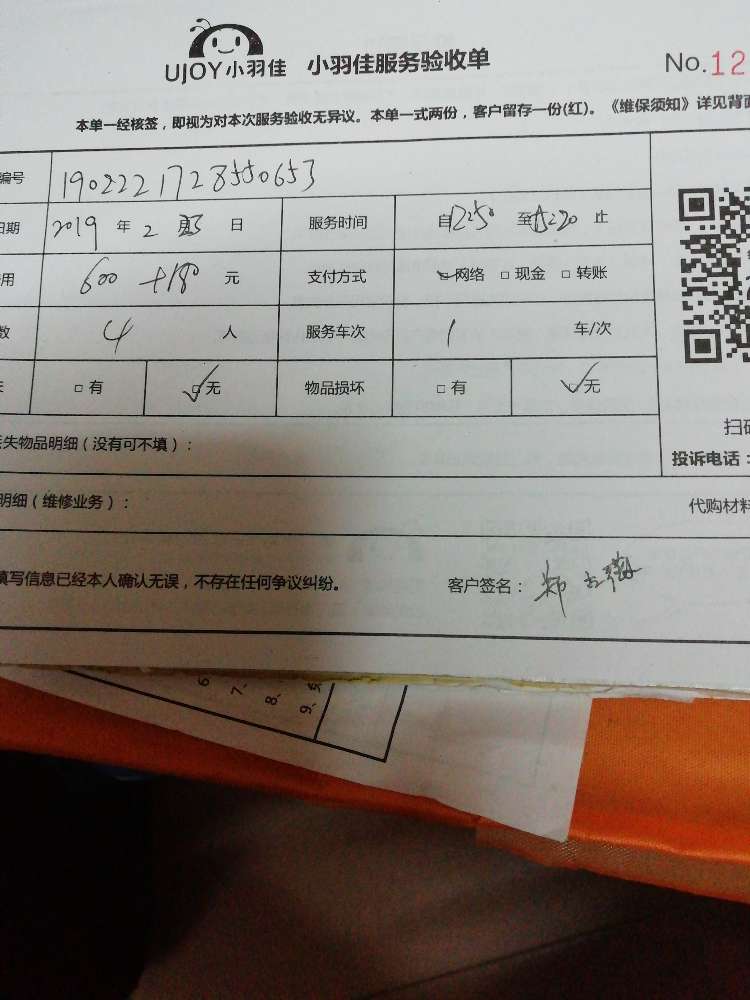 UJOY小羽佳 小羽佳服务验收单 No.12
本单一经核签，即视为对本次服务验收无异议。本单一式两份，客户留存一份(红)。《维保须知》详见背面
编号 190222172855550653
日期 2019 年 2 日 服务时间 自12:50 至15:20 止
用 600 +180 元 支付方式 网络 现金 转账
数 4 人 服务车次 1 车/次
有 无 物品损坏 有 无
丢失物品明细（没有可不填）：
扫码
投诉电话：
明细（维修业务）： 代购材料
填写信息已经本人确认无误，不存在任何争议纠纷。 客户签名：郑
6
7、
8、
9、